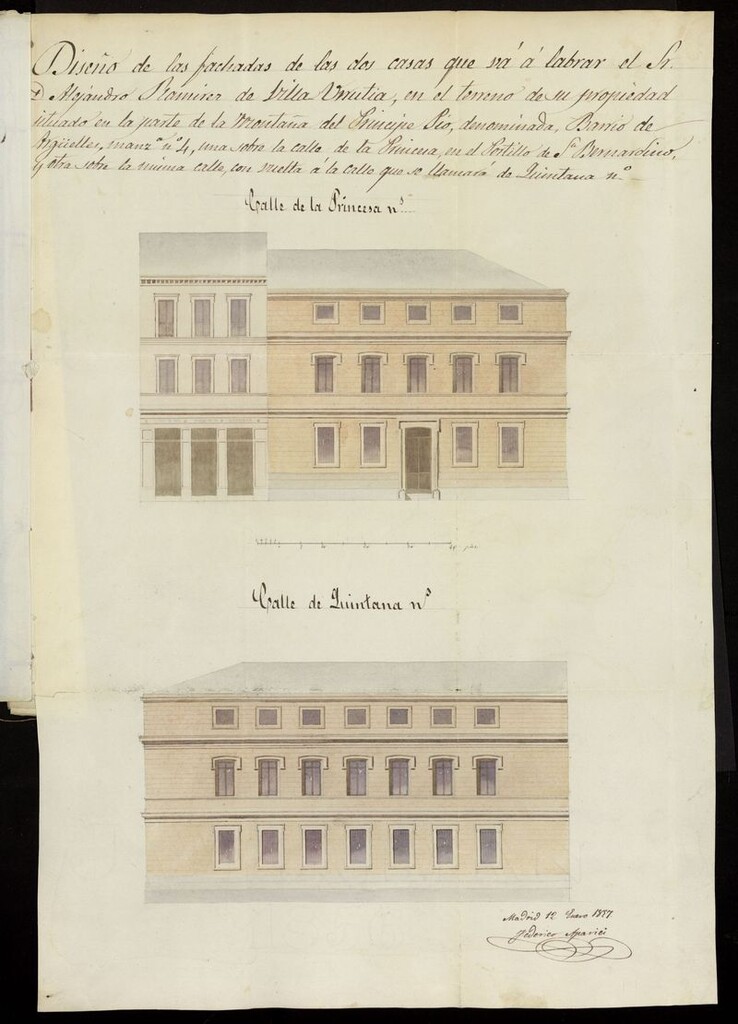 Diseño de las fachadas de las dos casas que vá á labrar el Sr.
D Alejandro Ramirez de Villa Urrutia, en el terreno de su propiedad
situado en la parte de la Montaña del Principe Pio, denominada, Barrio de
Argüelles, manz.ª n.º 4, una sobre la calle de la Princesa, en el Portillo de S.n Bernardino,
y otra sobre la misma calle, con vuelta á la calle que se llamará de Quintana n.º
Calle de la Princesa n.º
Calle de Quintana n.º
Madrid 12 Enero 1857
Federico Aparici